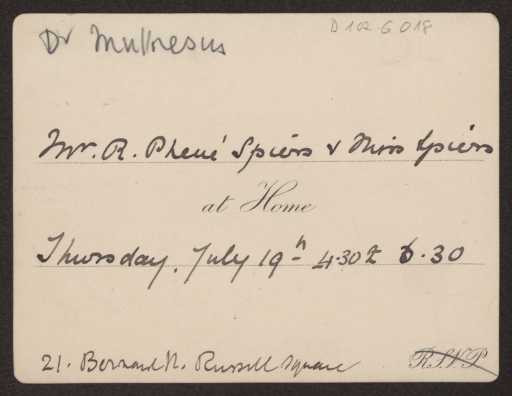 D 102 G 018
Dr Muthesius
Mr. R. Phené Spiers & Miss Spiers
at Home
Thursday, July 19th 4.30 to 6.30
21. Bernard St. Russell Square
R.S.V.P.